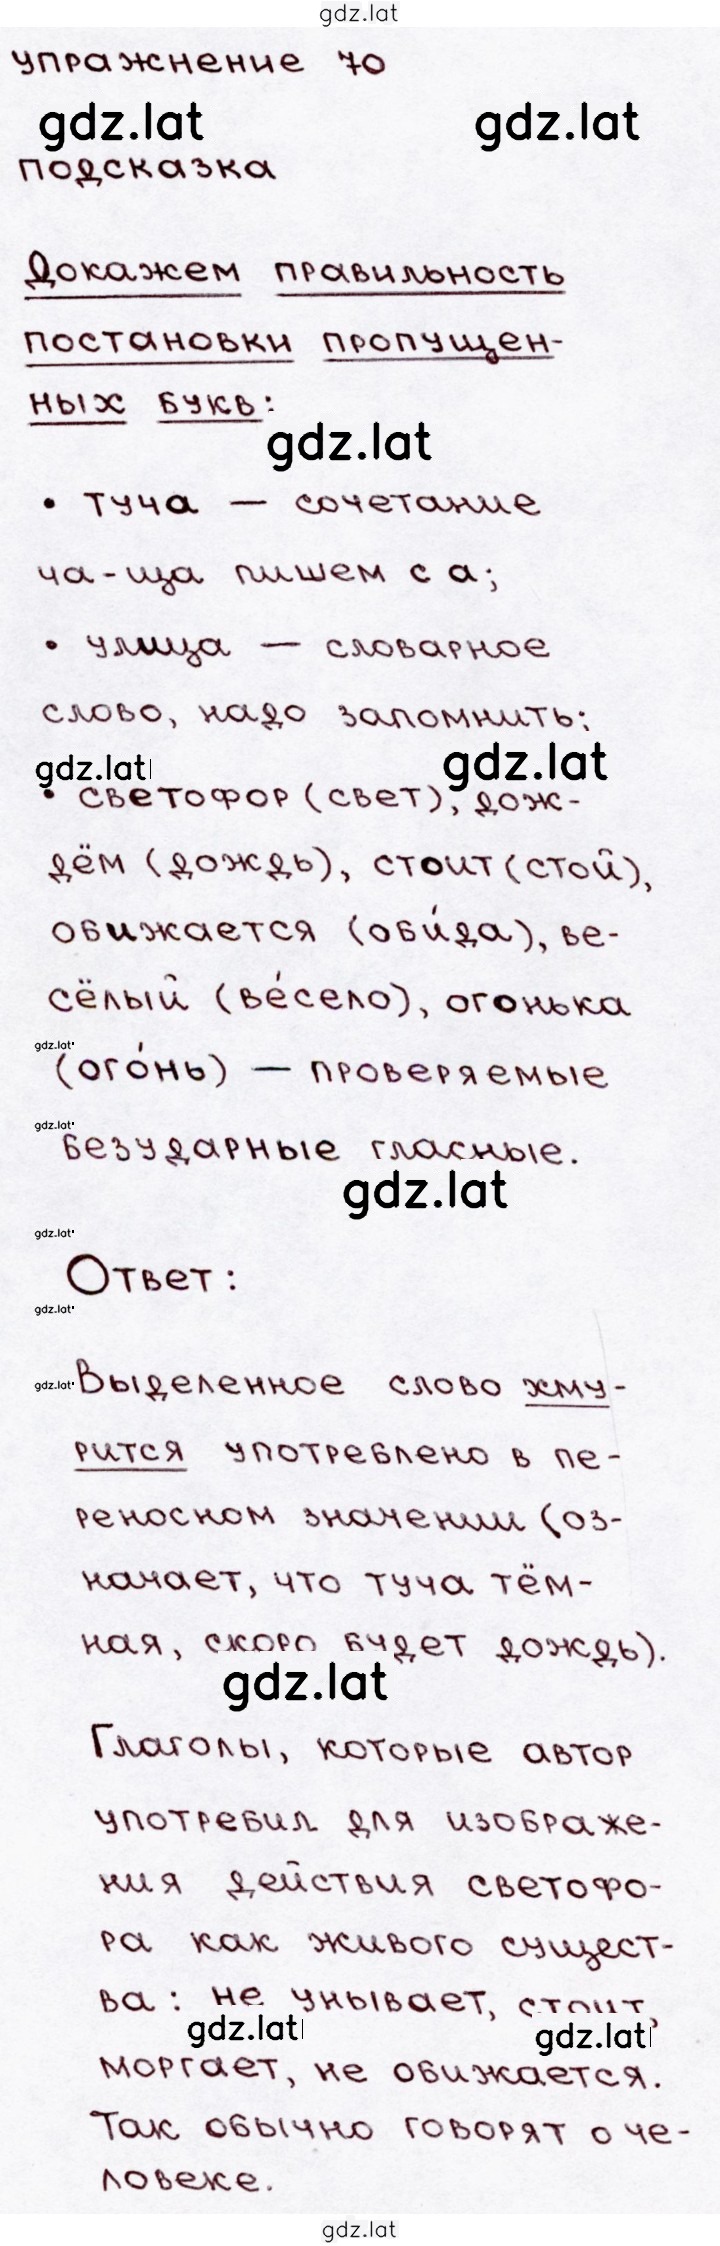 gdz.lat
упражнение 70
gdz.lat gdz.lat
подсказка
Докажем правильность
постановки пропущен-
ных букв:
gdz.lat
• туча — сочетание
ча-ща пишем с а;
• улица — словарное
слово, надо запомнить;
gdz.lat gdz.lat
• светофор (свет), дож-
дём (дождь), стоит (стой),
обижается (оби́да), ве-
сёлый (ве́село), огонька
gdz.lat
(ого́нь) — проверяемые
gdz.lat
безударные гласные.
gdz.lat
gdz.lat
Ответ:
gdz.lat
gdz.lat
Выделенное слово хму-
рится употреблено в пе-
реносном значении (оз-
начает, что туча тём-
ная, скоро будет дождь).
gdz.lat
Глаголы, которые автор
употребил для изображе-
ния действия светофо-
ра как живого сущест-
ва: не унывает, стоит,
gdz.lat gdz.lat
моргает, не обижается.
Так обычно говорят о че-
ловеке.
gdz.lat